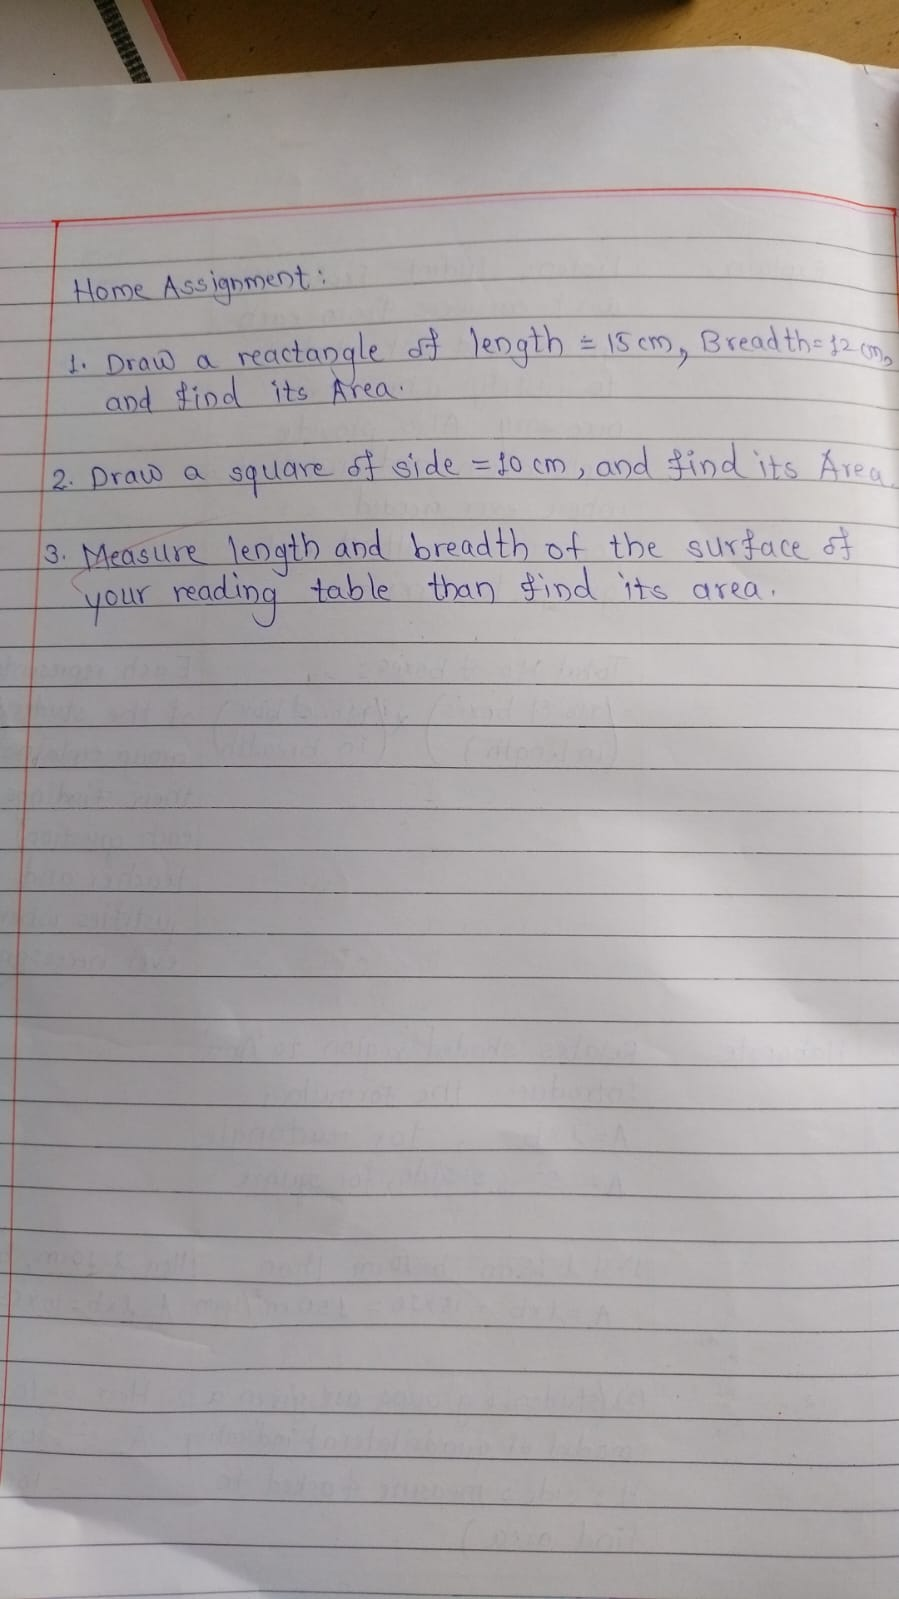 Home Assignment:
1. Draw a reactangle of length = 15 cm, Breadth = 12 cm,
and find its Area.
2. Draw a square of side = 10 cm, and find its Area.
3. Measure length and breadth of the surface of
your reading table than find its area.